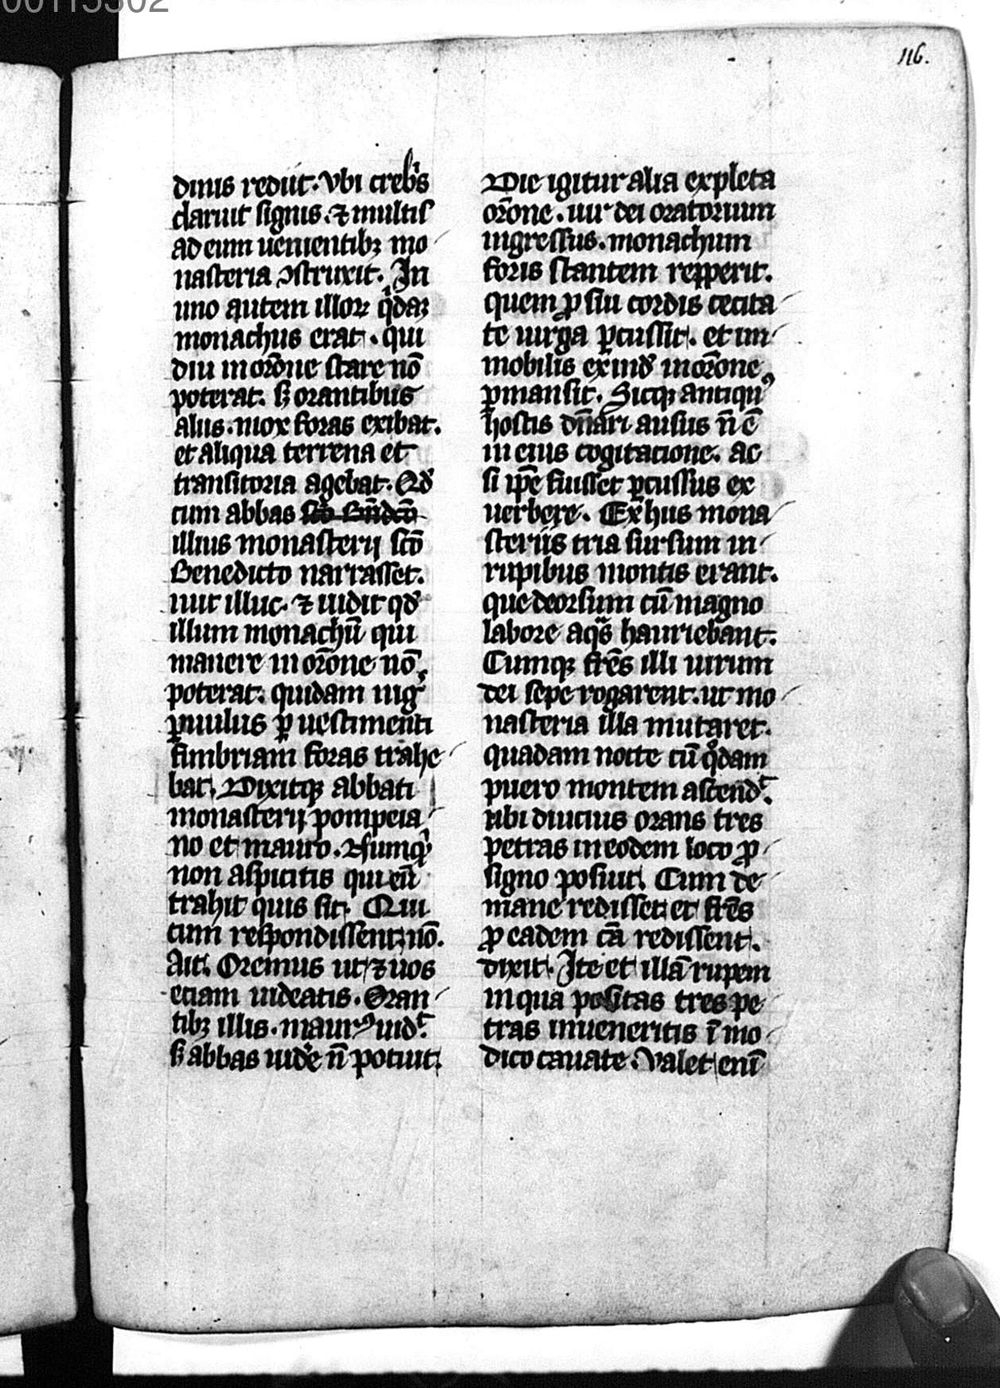 00115302
116.
dinis rediit. vbi creb͛s
claruit signis. ⁊ multis
ad eum uenientibꝫ mo
nasteria ꝯstruxit. In
uno autem illoꝝ q̇daꝫ
monachus erat. qui
diu in or̄one stare nō
poterat. sꝫ orantibus
aliis. mox foras exibat.
et aliqua terrena et
transitoria agebat. Qd̓
cum abbas sc̄o bn̄dc̄o
illius monasterij sc̄o
Benedicto narrasset.
iuit illuc. ⁊ uidit qd̓
illum monachū qui
manere in or̄one nō
poterat. quidam nig͛
ꝑuulus ꝑ uestimenti
fimbriam foras trahe
bat. Dixitqꝫ abbati
monasterij pompeia
no et mauro. Nūmqͥd
non aspicitis qui eū
trahit quis sit. Qui
cum respondissent nō.
Ait. Oremus ut ⁊ uos
etiam uideatis. Oran
tibꝫ illis. maurꝰ uid͛.
sꝫ abbas uid̓e n̄ potuit.
Die igitur alia expleta
or̄one. uir dei oratorium
ingressus. monachum
foris stantem repperit.
quem ꝓ sui cordis cecita
te uirga ꝑcussit. et im
mobilis exind̓ in or̄one
ꝑmansit. Sicqꝫ antiquꝰ
hostis dn̄ari ausus n̄ ē
in eius cogitacione. ac
si ip̄e fuisset ꝑcussus ex
uerbere. Ex hiis mona
steriis tria sursum in
rupibus montis erant.
que deorsum cū magno
labore aqᵃs hauriebant.
Cumqꝫ fr̄es illi uirum
dei sepe rogarent. ut mo
nasteria illa mutaret.
quadam nocte cū qͦdam
puero montem ascend͛.
ubi diucius orans tres
petras in eodem loco ꝓ
signo posuit. Cum de
mane redisset et fr̄es
ꝓ eadem cā redissent.
dixit. Ite et illā rupem
in qua positas tres pe
tras inueneritis ī mo
dico cauate. Valet enī